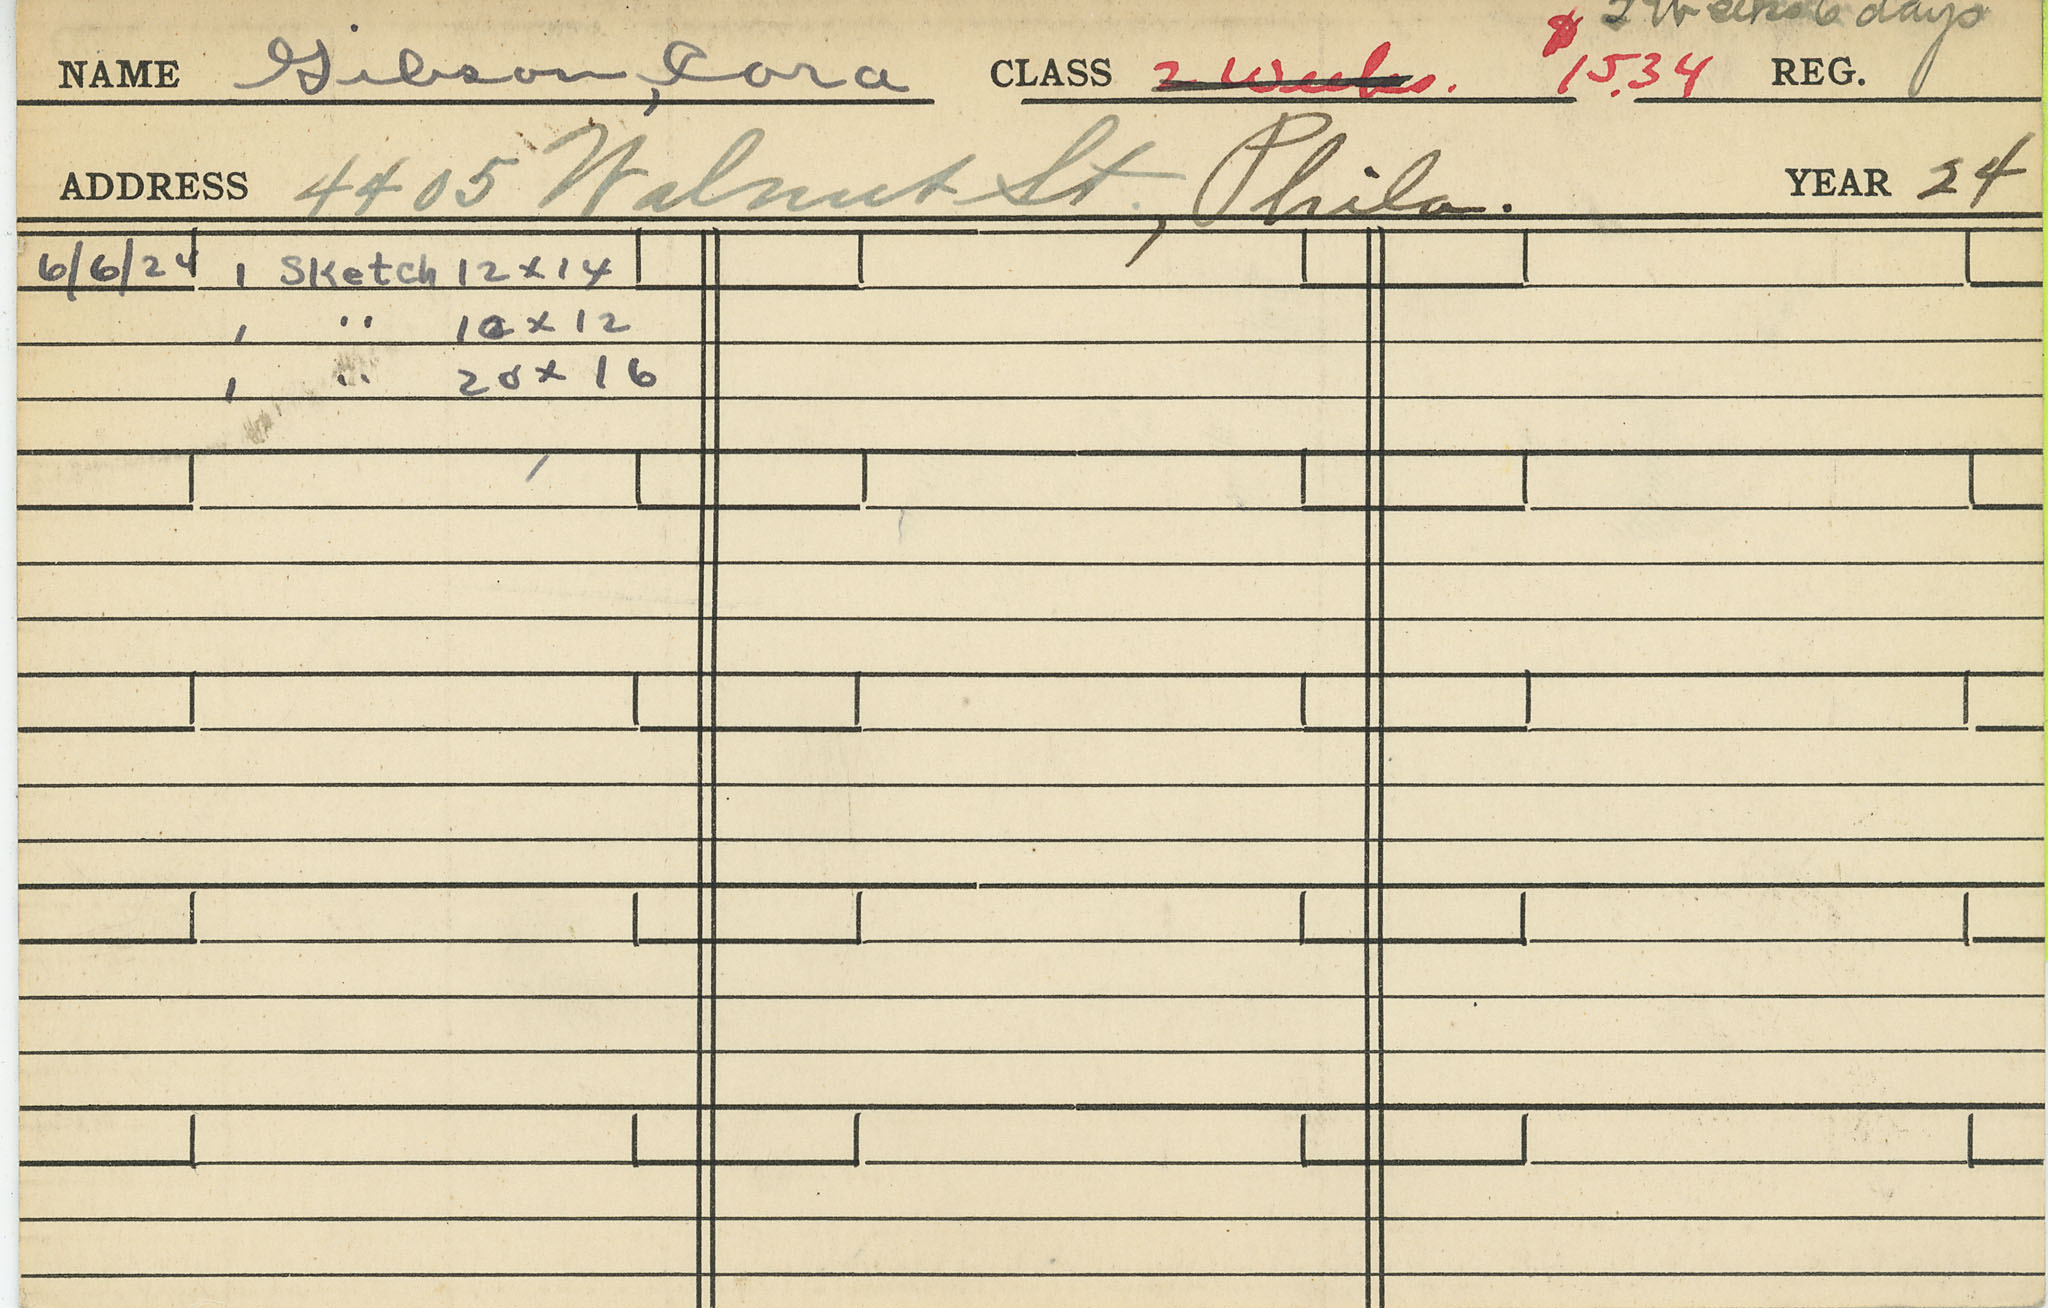 2 Weeks 6 days
NAME Gibson, Cora CLASS 2 Weeks. $15.34 REG.
ADDRESS 4405 Walnut St., Phila. YEAR 24
6/6/24 1 Sketch 12 x 14
1 " 10 x 12
1 " 20 x 16